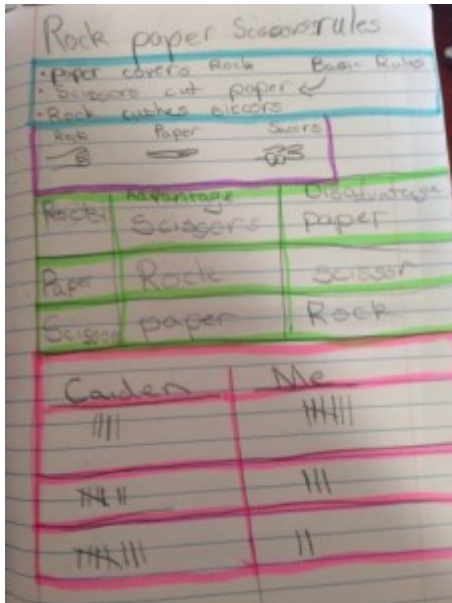 Rock paper Scissors rules
• Paper covers Rock Basic Rules
• Scissors cut paper
• Rock cushes siccors
Rock Paper
Advantage Disadvantage
Rock Scissors paper
Paper Rock scissor
Scissor paper Rock
Caiden Me